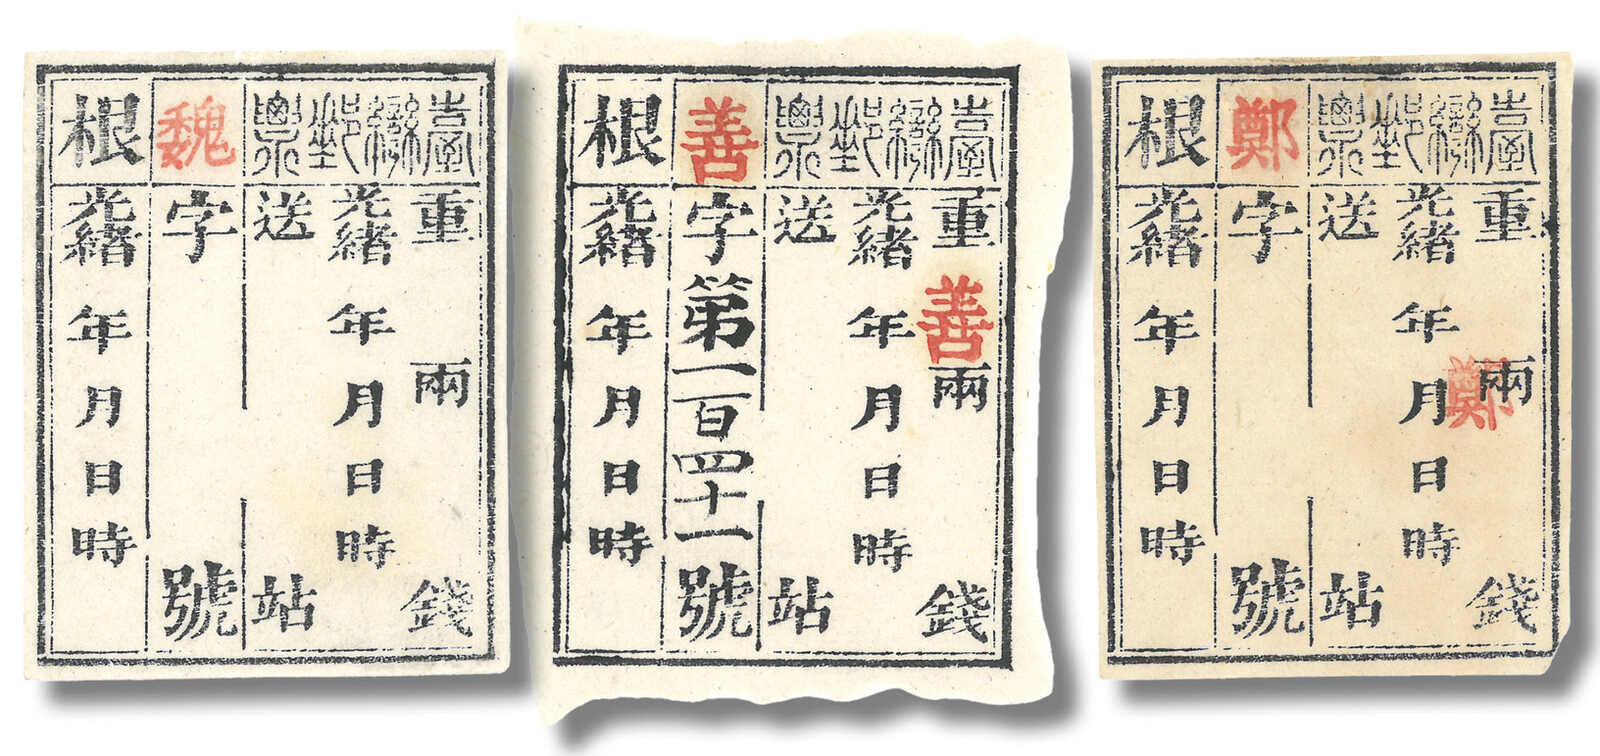 臺灣郵票
重 兩 錢
光緒 年 月 日 時
送 站
魏字 號
根
光緒 年 月 日 時
臺灣郵票
重 善 兩 錢
光緒 年 月 日 時
送 站
善字第一百四十一號
根
光緒 年 月 日 時
臺灣郵票
重 兩 錢
鄭
光緒 年 月 日 時
送 站
鄭字 號
根
光緒 年 月 日 時